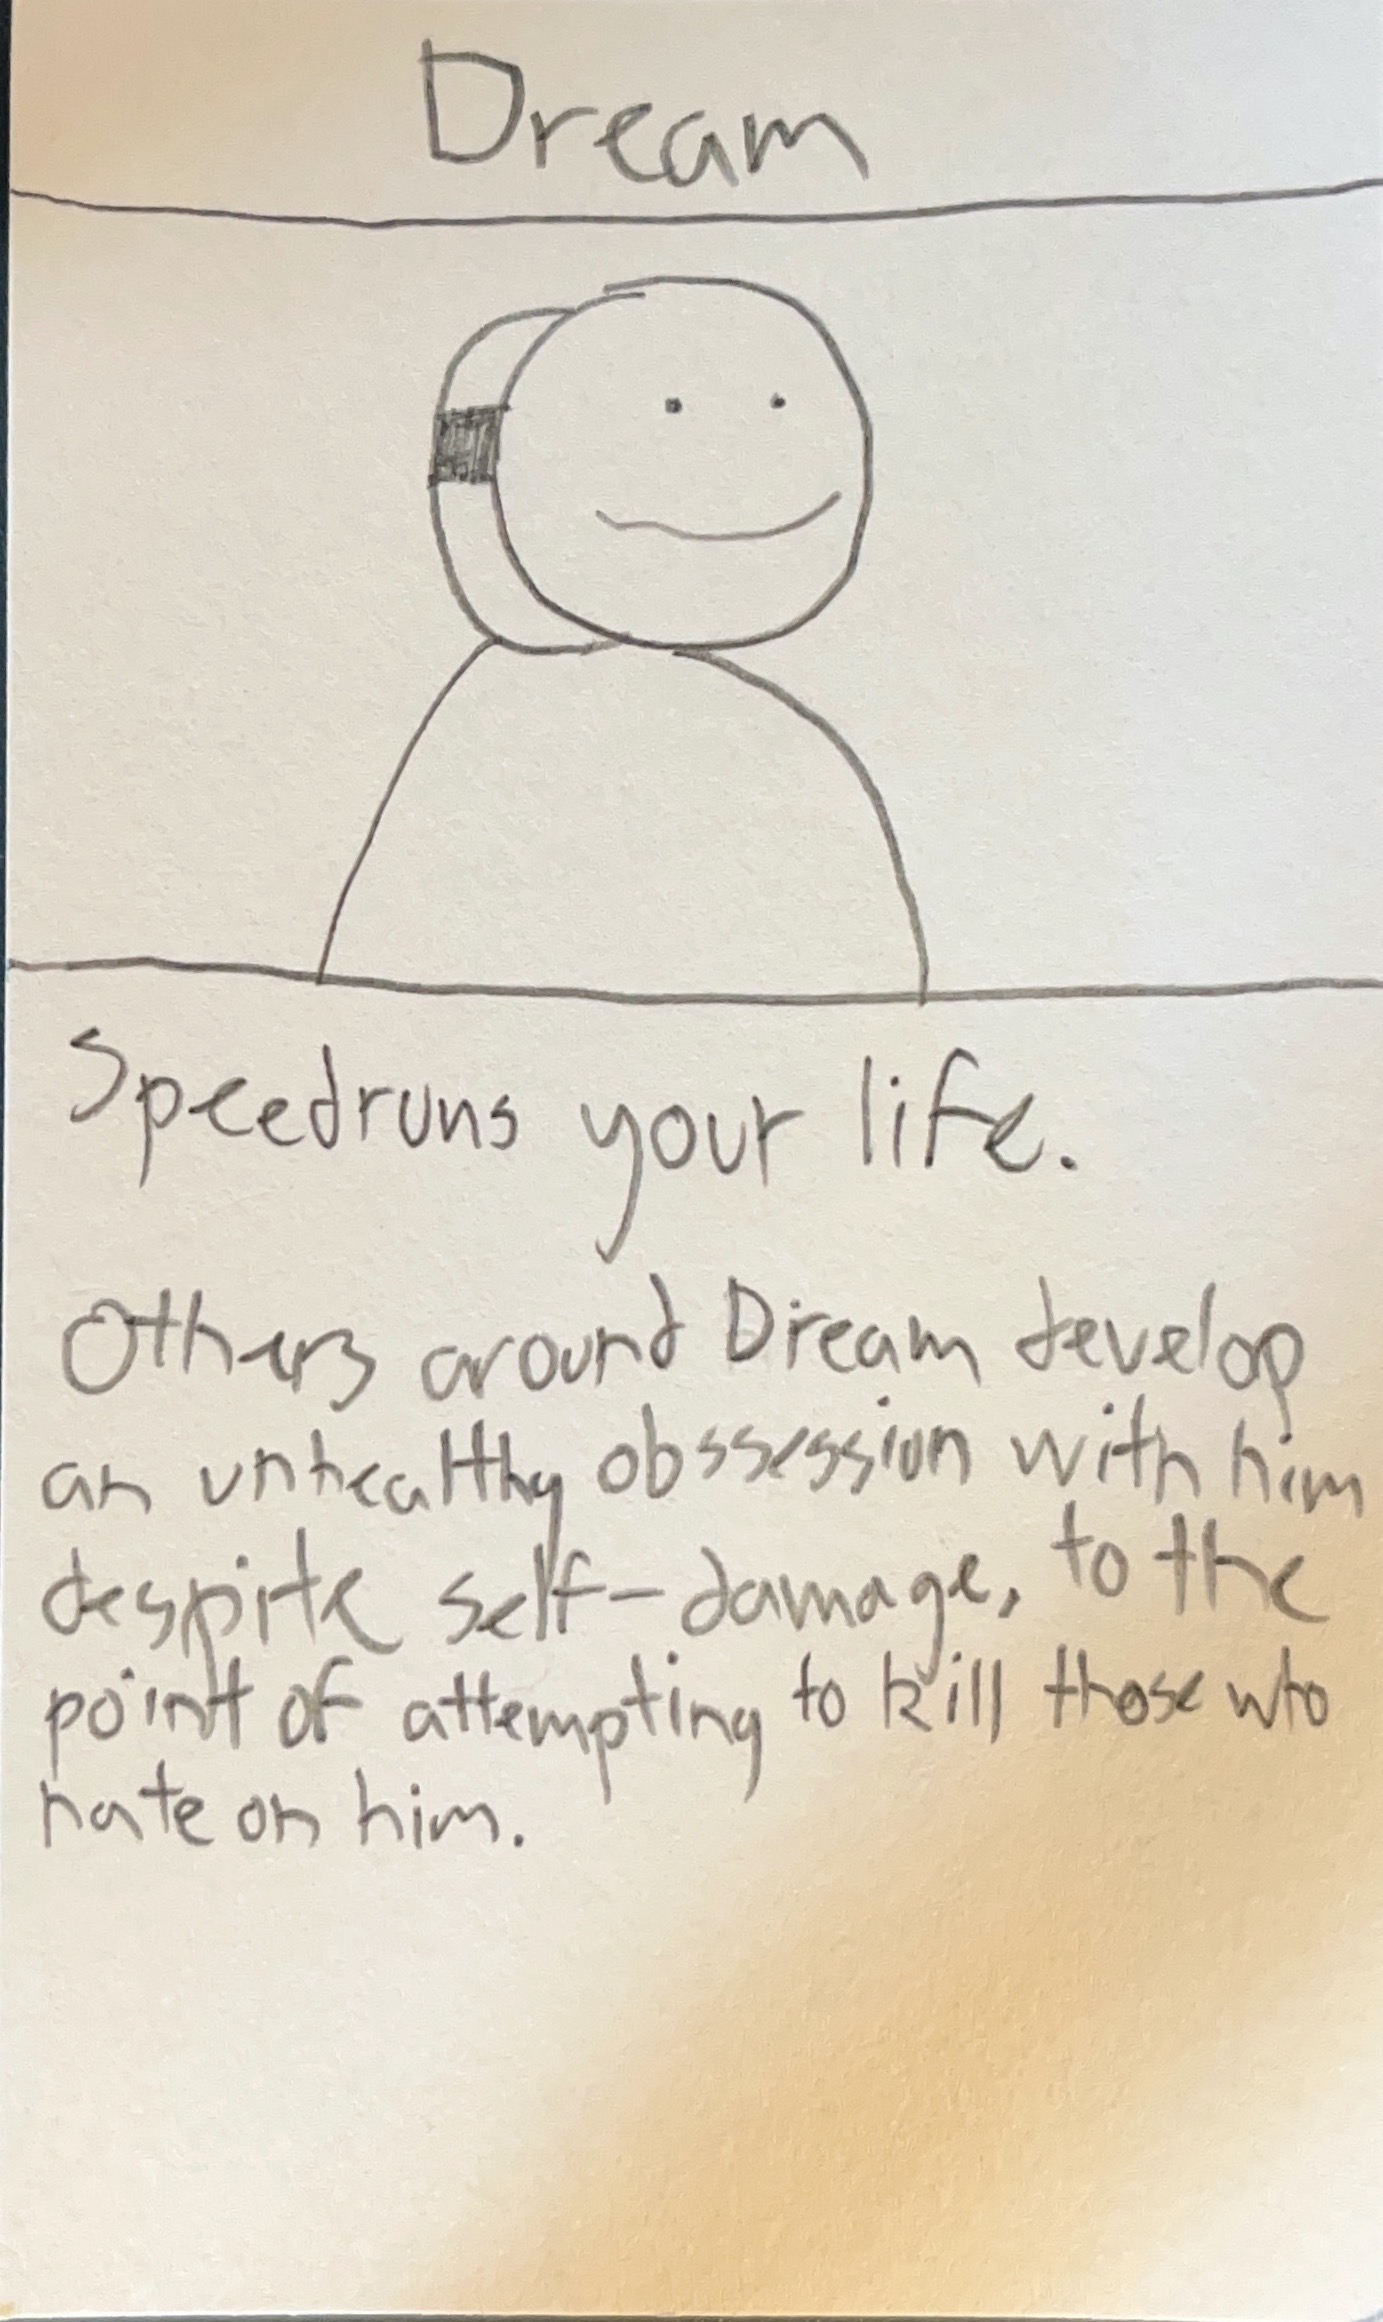 Dream
Speedruns your life.
Others around Dream develop
an unhealthy obssession with him
despite self-damage, to the
point of attempting to kill those who
hate on him.